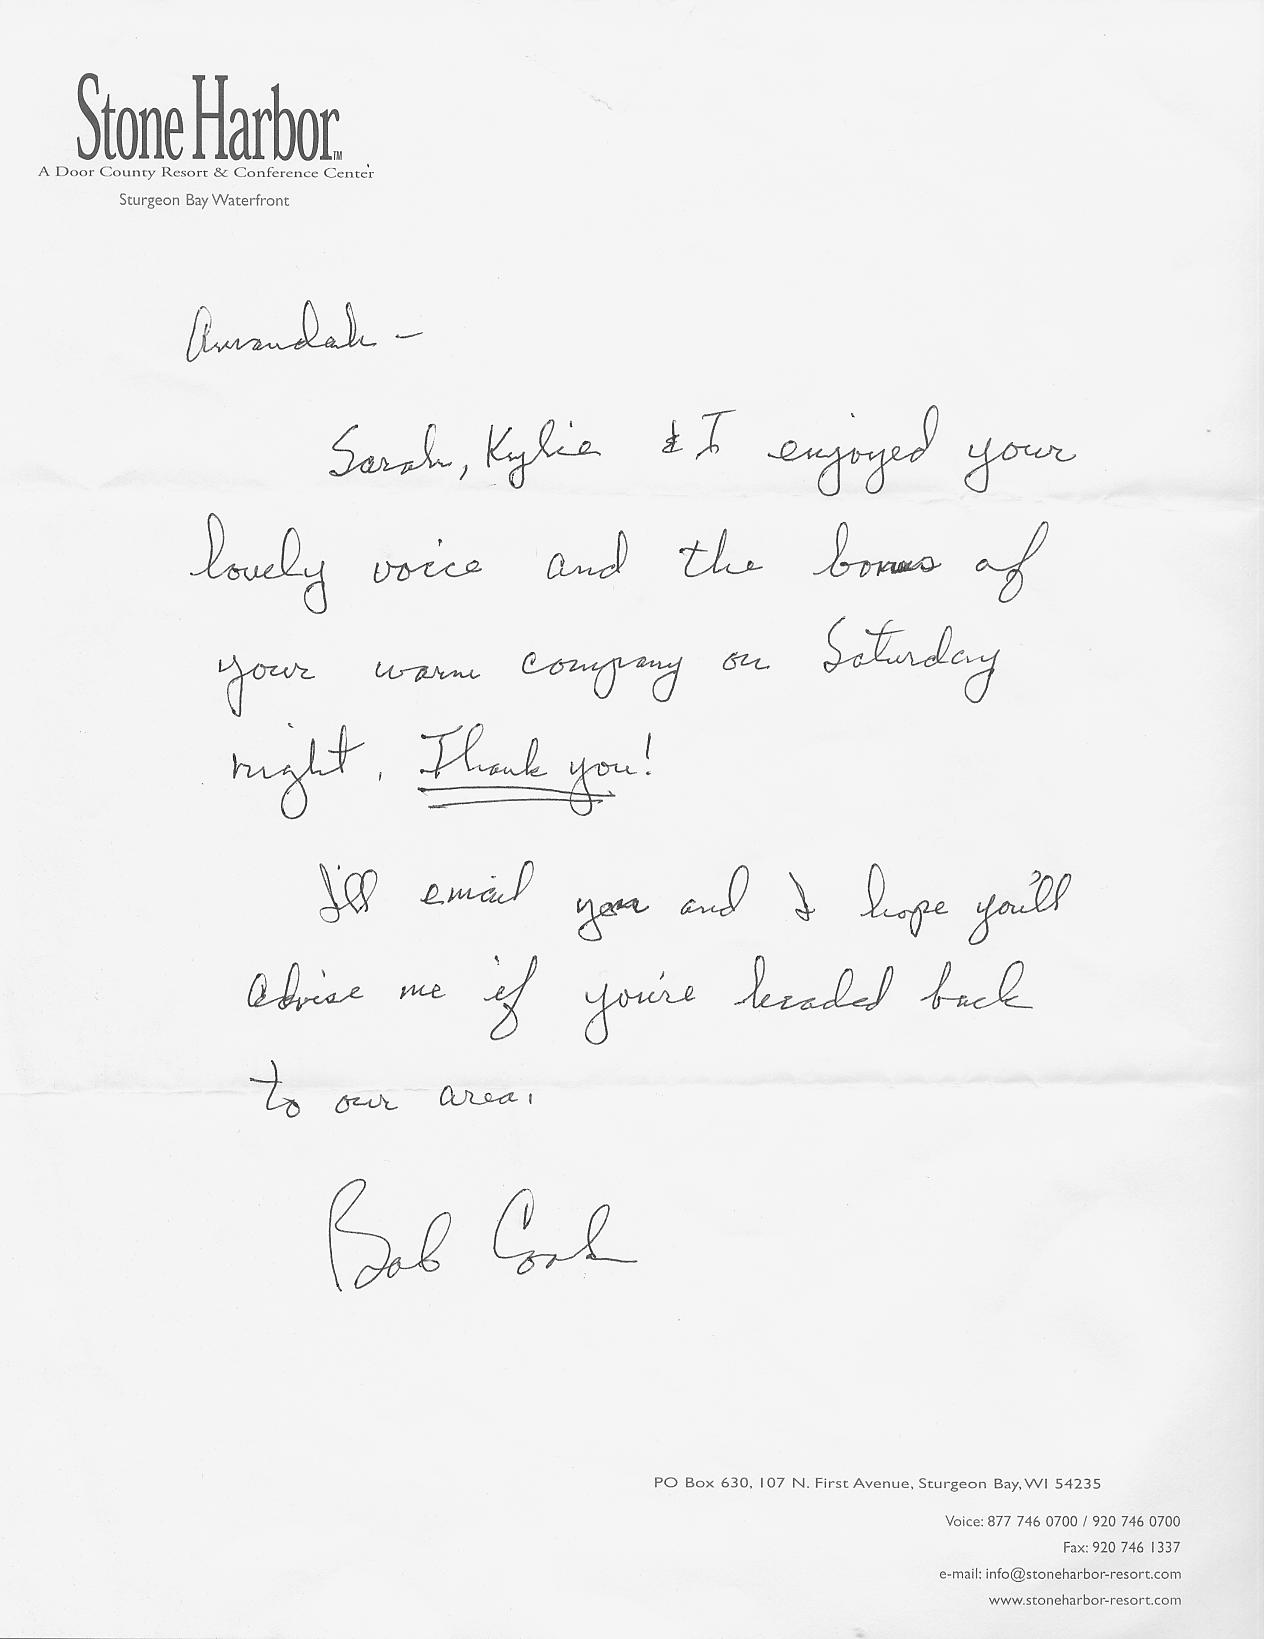 Stone Harbor™
A Door County Resort & Conference Center
Sturgeon Bay Waterfront
Amandah -
Sarah, Kylie & I enjoyed your
lovely voice and the bonus of
your warm company on Saturday
night. Thank you!
I'll email you and I hope you'll
advise me if you're headed back
to our area.
Bob Cook
PO Box 630, 107 N. First Avenue, Sturgeon Bay, WI 54235
Voice: 877 746 0700 / 920 746 0700
Fax: 920 746 1337
e-mail: info@stoneharbor-resort.com
www.stoneharbor-resort.com